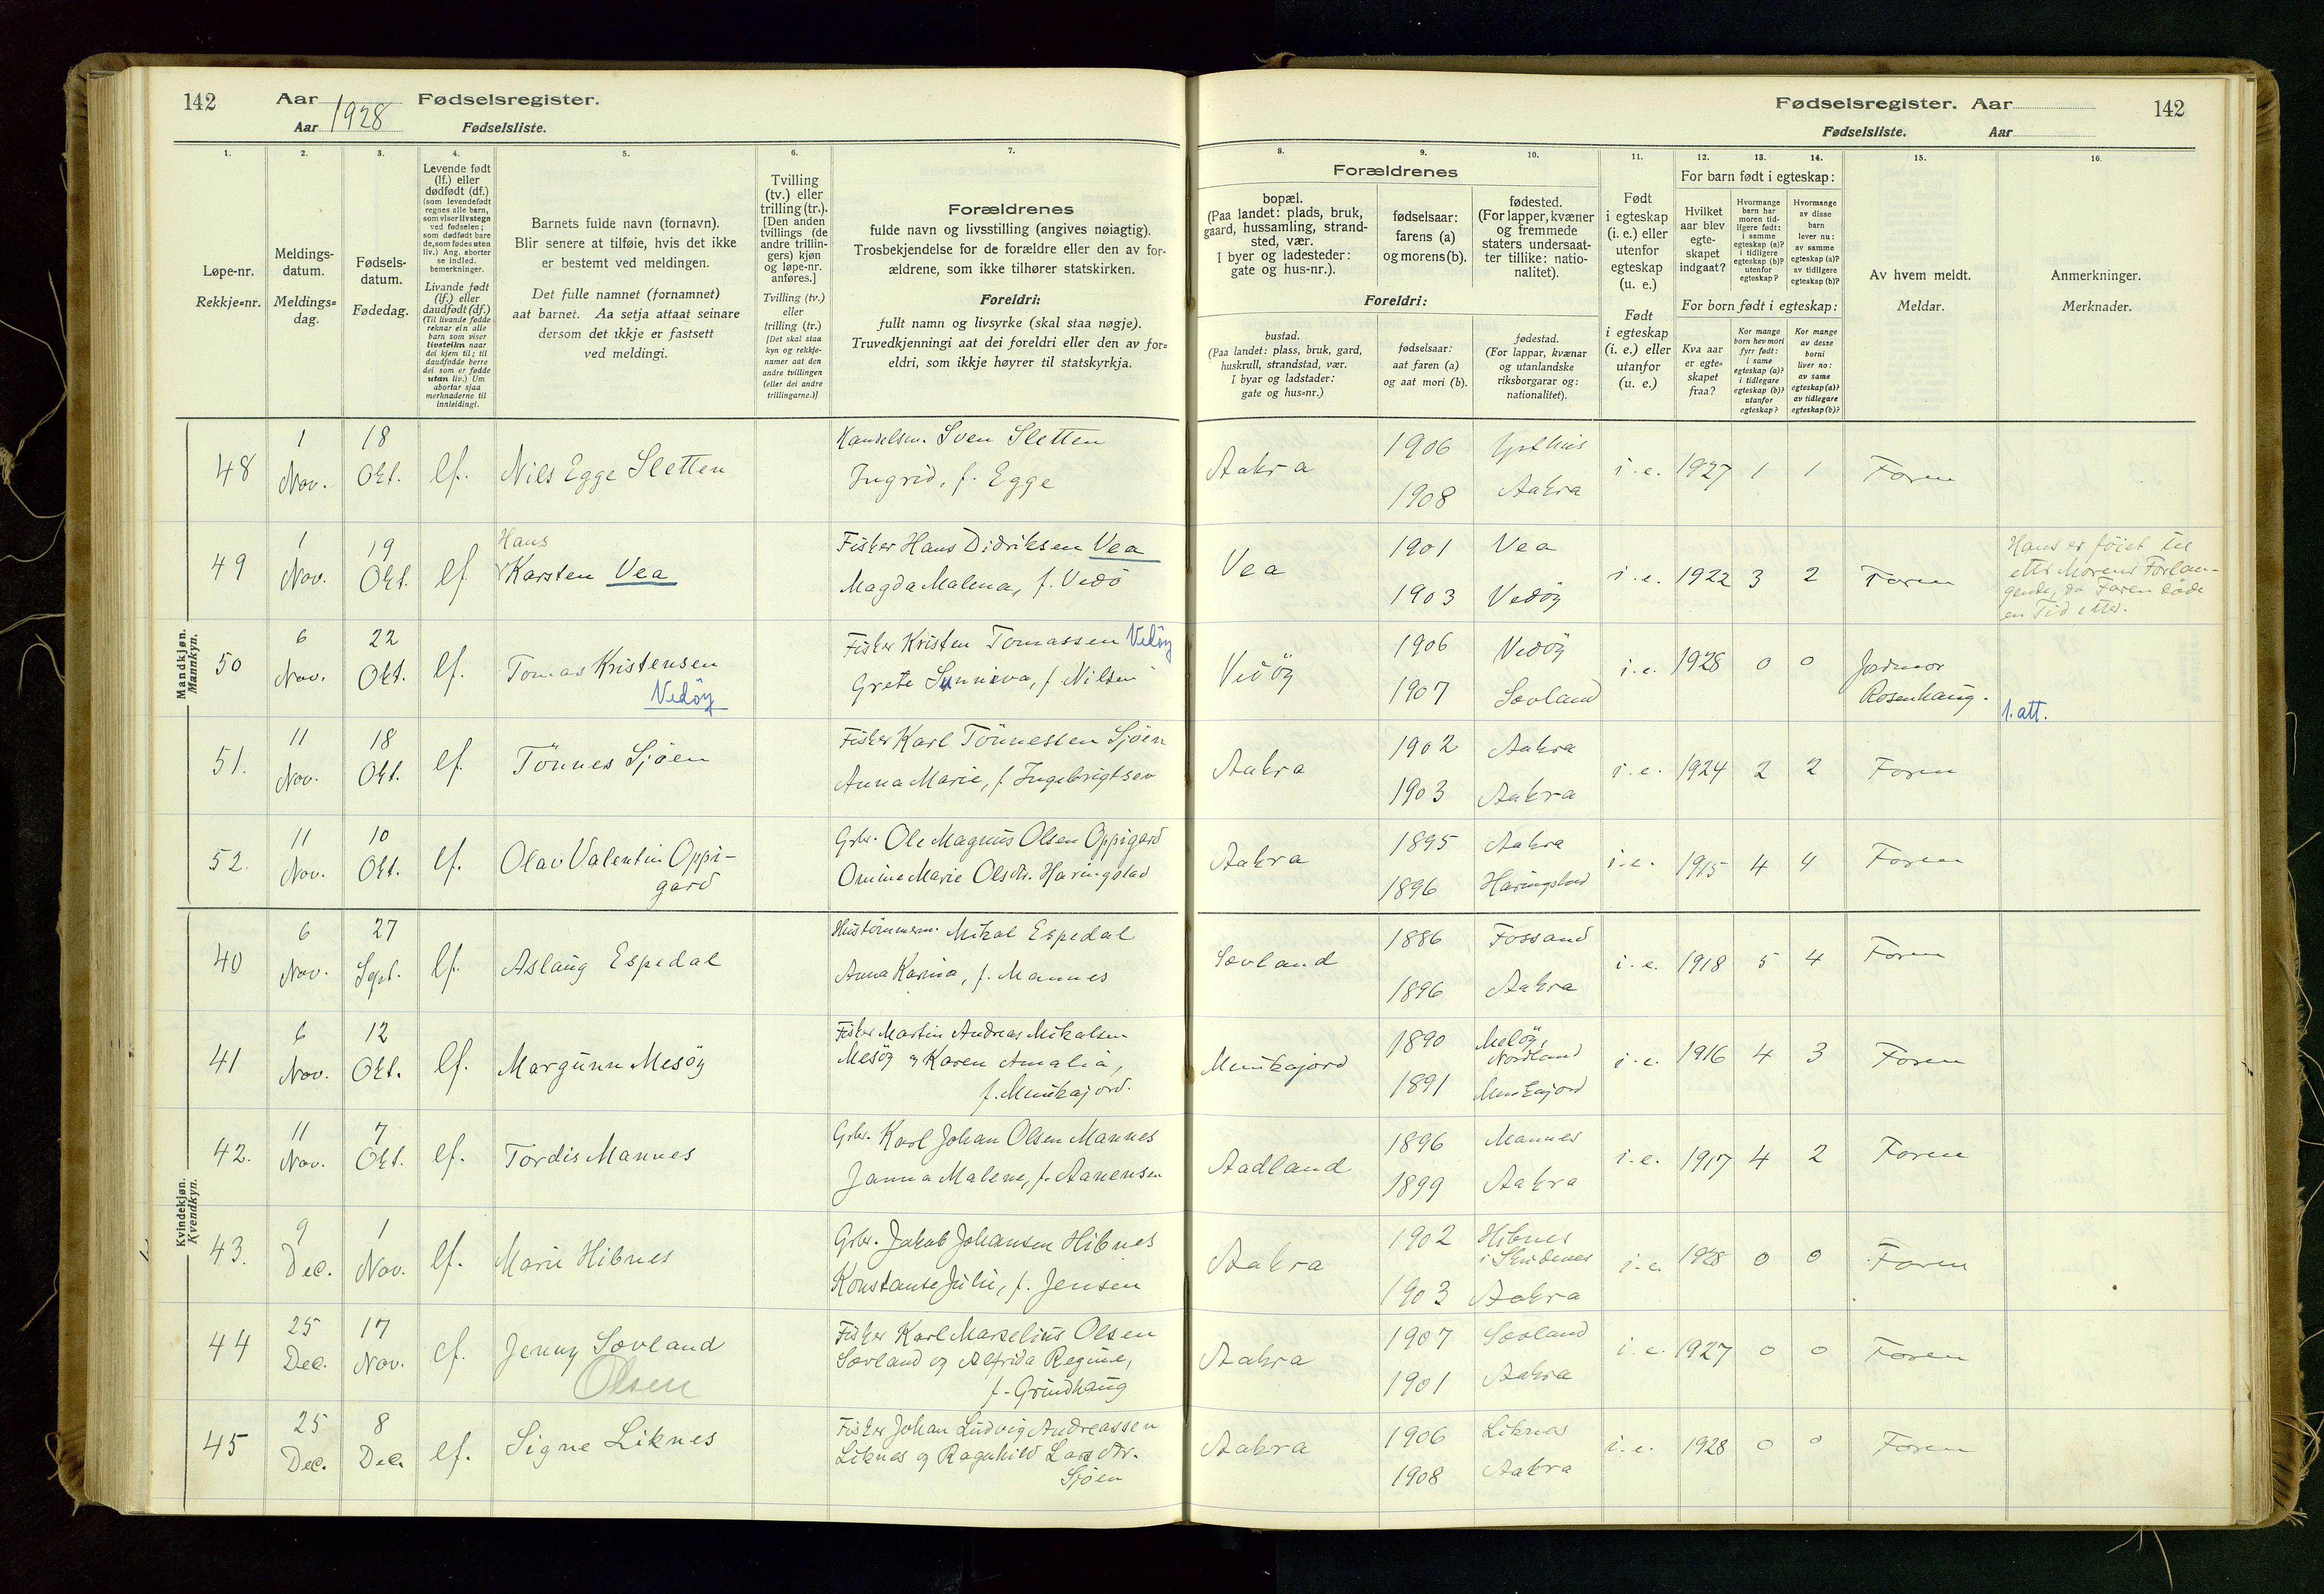 142
Aar 1928 Fødselsregister.
Aar Fødselsliste.
Fødselsregister. Aar
142
Fødselsliste. Aar
1.
2.
3.
4.
5.
6.
7.
8.
9.
10.
11.
12.
13.
14.
15.
16.
Løpe-nr.
Rekkje=nr.
Meldings-
datum.
Meldings=
dag.
Fødsels-
datum.
Fødedag.
Levende født
(lf.) eller
dødfødt (df.)
(som levendefødt
regnes alle barn,
som viser livstegn
ved fødselen;
som dødfødt bare
de, som fødes uten
liv.) Ang. aborter
se indled.
bemerkninger.
Livande født
(lf.) eller
daudfødt (df.)
(Til livande fødde
reknar ein alle
barn som viser
livsteikn naar
dei kjem til; til
daudfødde berre
dei som er fødde
utan liv.) Um
abortar sjaa
merknaderne til
innleidingi.
Barnets fulde navn (fornavn).
Blir senere at tilføie, hvis det ikke
er bestemt ved meldingen.
Det fulle namnet (fornamnet)
aat barnet. Aa setja attaat seinare
dersom det ikkje er fastsett
ved meldingi.
Tvilling
(tv.) eller
trilling (tr.).
[Den anden
tvillings (de
andre trillin-
gers) kjøn
og løpe-nr.
anføres.]
Tvilling (tv.)
eller
trilling (tr.)
[Det skal staa
kyn og rekkje-
namer aat den
andre tvillingen
(eller dei andre
trillingarne.)]
Forældrenes
fulde navn og livsstilling (angives nøiagtig).
Trosbekjendelse for de forældre eller den av for-
ældrene, som ikke tilhører statskirken.
Foreldri:
fullt namn og livsyrke (skal staa nøgje).
Truvedkjenningi aat dei foreldri eller den av for=
eldri, som ikkje høyrer til statskyrkja.
Forældrenes
bopæl.
(Paa landet: plads, bruk,
gaard, hussamling, strand-
sted, vær.
I byer og ladesteder:
gate og hus-nr.).
fødselsaar:
farens (a)
og morens (b).
fødested.
(For lapper, kvæner
og fremmede
staters undersaat-
ter tillike: natio-
nalitet).
Foreldri:
bustad.
(Paa landet: plass, bruk, gard,
huskrull, strandstad, vær.
I byar og ladstader:
gate og hus=nr.)
fødselsaar:
aat faren (a)
og aat mori (b).
fødestad.
(For lappar, kvænar
og utanlandske
riksborgarar og:
nationalitet).
Født
i egteskap
(i. e.) eller
utenfor
egteskap
(u. e.)
Født
i egteskap
(i. e.) eller
utanfor
(u. e.)
For barn født i egteskap:
Hvilket
aar blev
egte-
skapet
indgaat?
Hvormange
barn har
moren tid-
ligere født:
i samme
egteskap (a)?
i tidligere
egteskap (b)?
utenfor
egteskap?
Hvormange
av disse
barn
lever nu:
av samme
egteskap (a)?
av tidligere
egteskap (b)?
For born født i egteskap:
Kva aar
er egte-
skapet
fraa?
Kor mange
born hev mori
fyrr født:
i same
egteskap (a)?
i tidlegare
egteskap (b)?
utanfor
egteskap?
Kor mange
av desse
borni
liver no:
av same
egteskap (a)?
av tidlegare
egteskap (b)?
Av hvem meldt.
Meldar.
Anmerkninger.
Merknader.
Mandkjøn.
Mannkyn.
48 1 Nov. 18 Okt. lf. Nils Egge Sletten
Handelsm. Sven Sletten
Ingrid, f. Egge
Aakra 1906 1908 Aakra i. e. 1927 1 1 Faren
49 1 Nov. 19 Okt. lf Hans
Karsten Vea
Fisker Hans Didriksen Vea
Magda Malena, f. Vedö
Vea 1901 Vea 1903 Vedöy i. e. 1922 3 2 Faren
Hans er föiet til
efter Morens Forlan-
gende, da Faren döde
en Tid efter.
50 6 Nov. 22 Okt. lf. Tomas Kristensen
Vedöy
Fisker Kristen Tomassen Vedöy
Grete Sunniva, f Nilsen
Vedöy 1906 Vedöy 1907 Sævland i. e. 1928 0 0 Jordmor
Rosenhaug.
1. att.
51. 11 Nov. 18 Okt. lf. Tönnes Sjöen
Fisker Karl Tönnessen Sjöen
Anna Marie, f. Ingebrigtsen
Aakra 1902 Aakra 1903 Aakra i. e. 1924 2 2 Faren
52. 11 Nov. 10 Okt. lf. Olav Valentin Oppi-
gard
Grbr. Ole Magnus Olsen Oppigard
Omine Marie Olsdtr. Haringstad
Aakra 1895 Aakra 1896 Haringstad i. e. 1915 4 4 Faren
Kvindekjøn.
Kvendkyn.
40 6 Nov. 27 Sept. lf. Aslaug Espedal
Hustömmerm. Mikal Espedal
Anna Karina, f. Mannes
Sævland 1886 Fossand 1896 Aakra i. e. 1918 5 4 Faren
41 6 Nov. 12 Okt. lf. Margunn Mesöy
Fisker Martin Andreas Mikalsen
Mesöy og Karen Amalia,
f. Munkajord.
Munkajord 1890 Melöy,
Nordland 1891 Munkajord i. e. 1916 4 3 Faren
42. 11 Nov. 7 Okt. lf. Tordis Mannes
Grbr. Karl Johan Olsen Mannes
Janna Malene, f. Aanensen
Aadland 1896 Mannes 1899 Aakra i. e. 1917 4 2 Faren
43. 9 Dec. 1 Nov. lf. Marie Hibnes
Grbr. Jakob Johansen Hibnes
Konstanse Julie, f. Jensen
Aakra 1902 Hibnes
i Skudenes 1903 Aakra i. e. 1928 0 0 Faren
44 25 Dec. 17 Nov. lf. Jenny Sævland
Olsen
Fisker Karl Marselius Olsen
Sævland og Alfrida Regine,
f. Grindhaug
Aakra 1907 Sævland 1901 Aakra i. e. 1927 0 0 Faren
45 25 Dec. 8 Dec. lf. Signe Liknes
Fisker Johan Ludvig Andreassen
Liknes og Ragnhild Larsdtr.
Sjöen
Aakra 1906 Liknes 1908 Aakra i. e. 1928 0 0 Faren